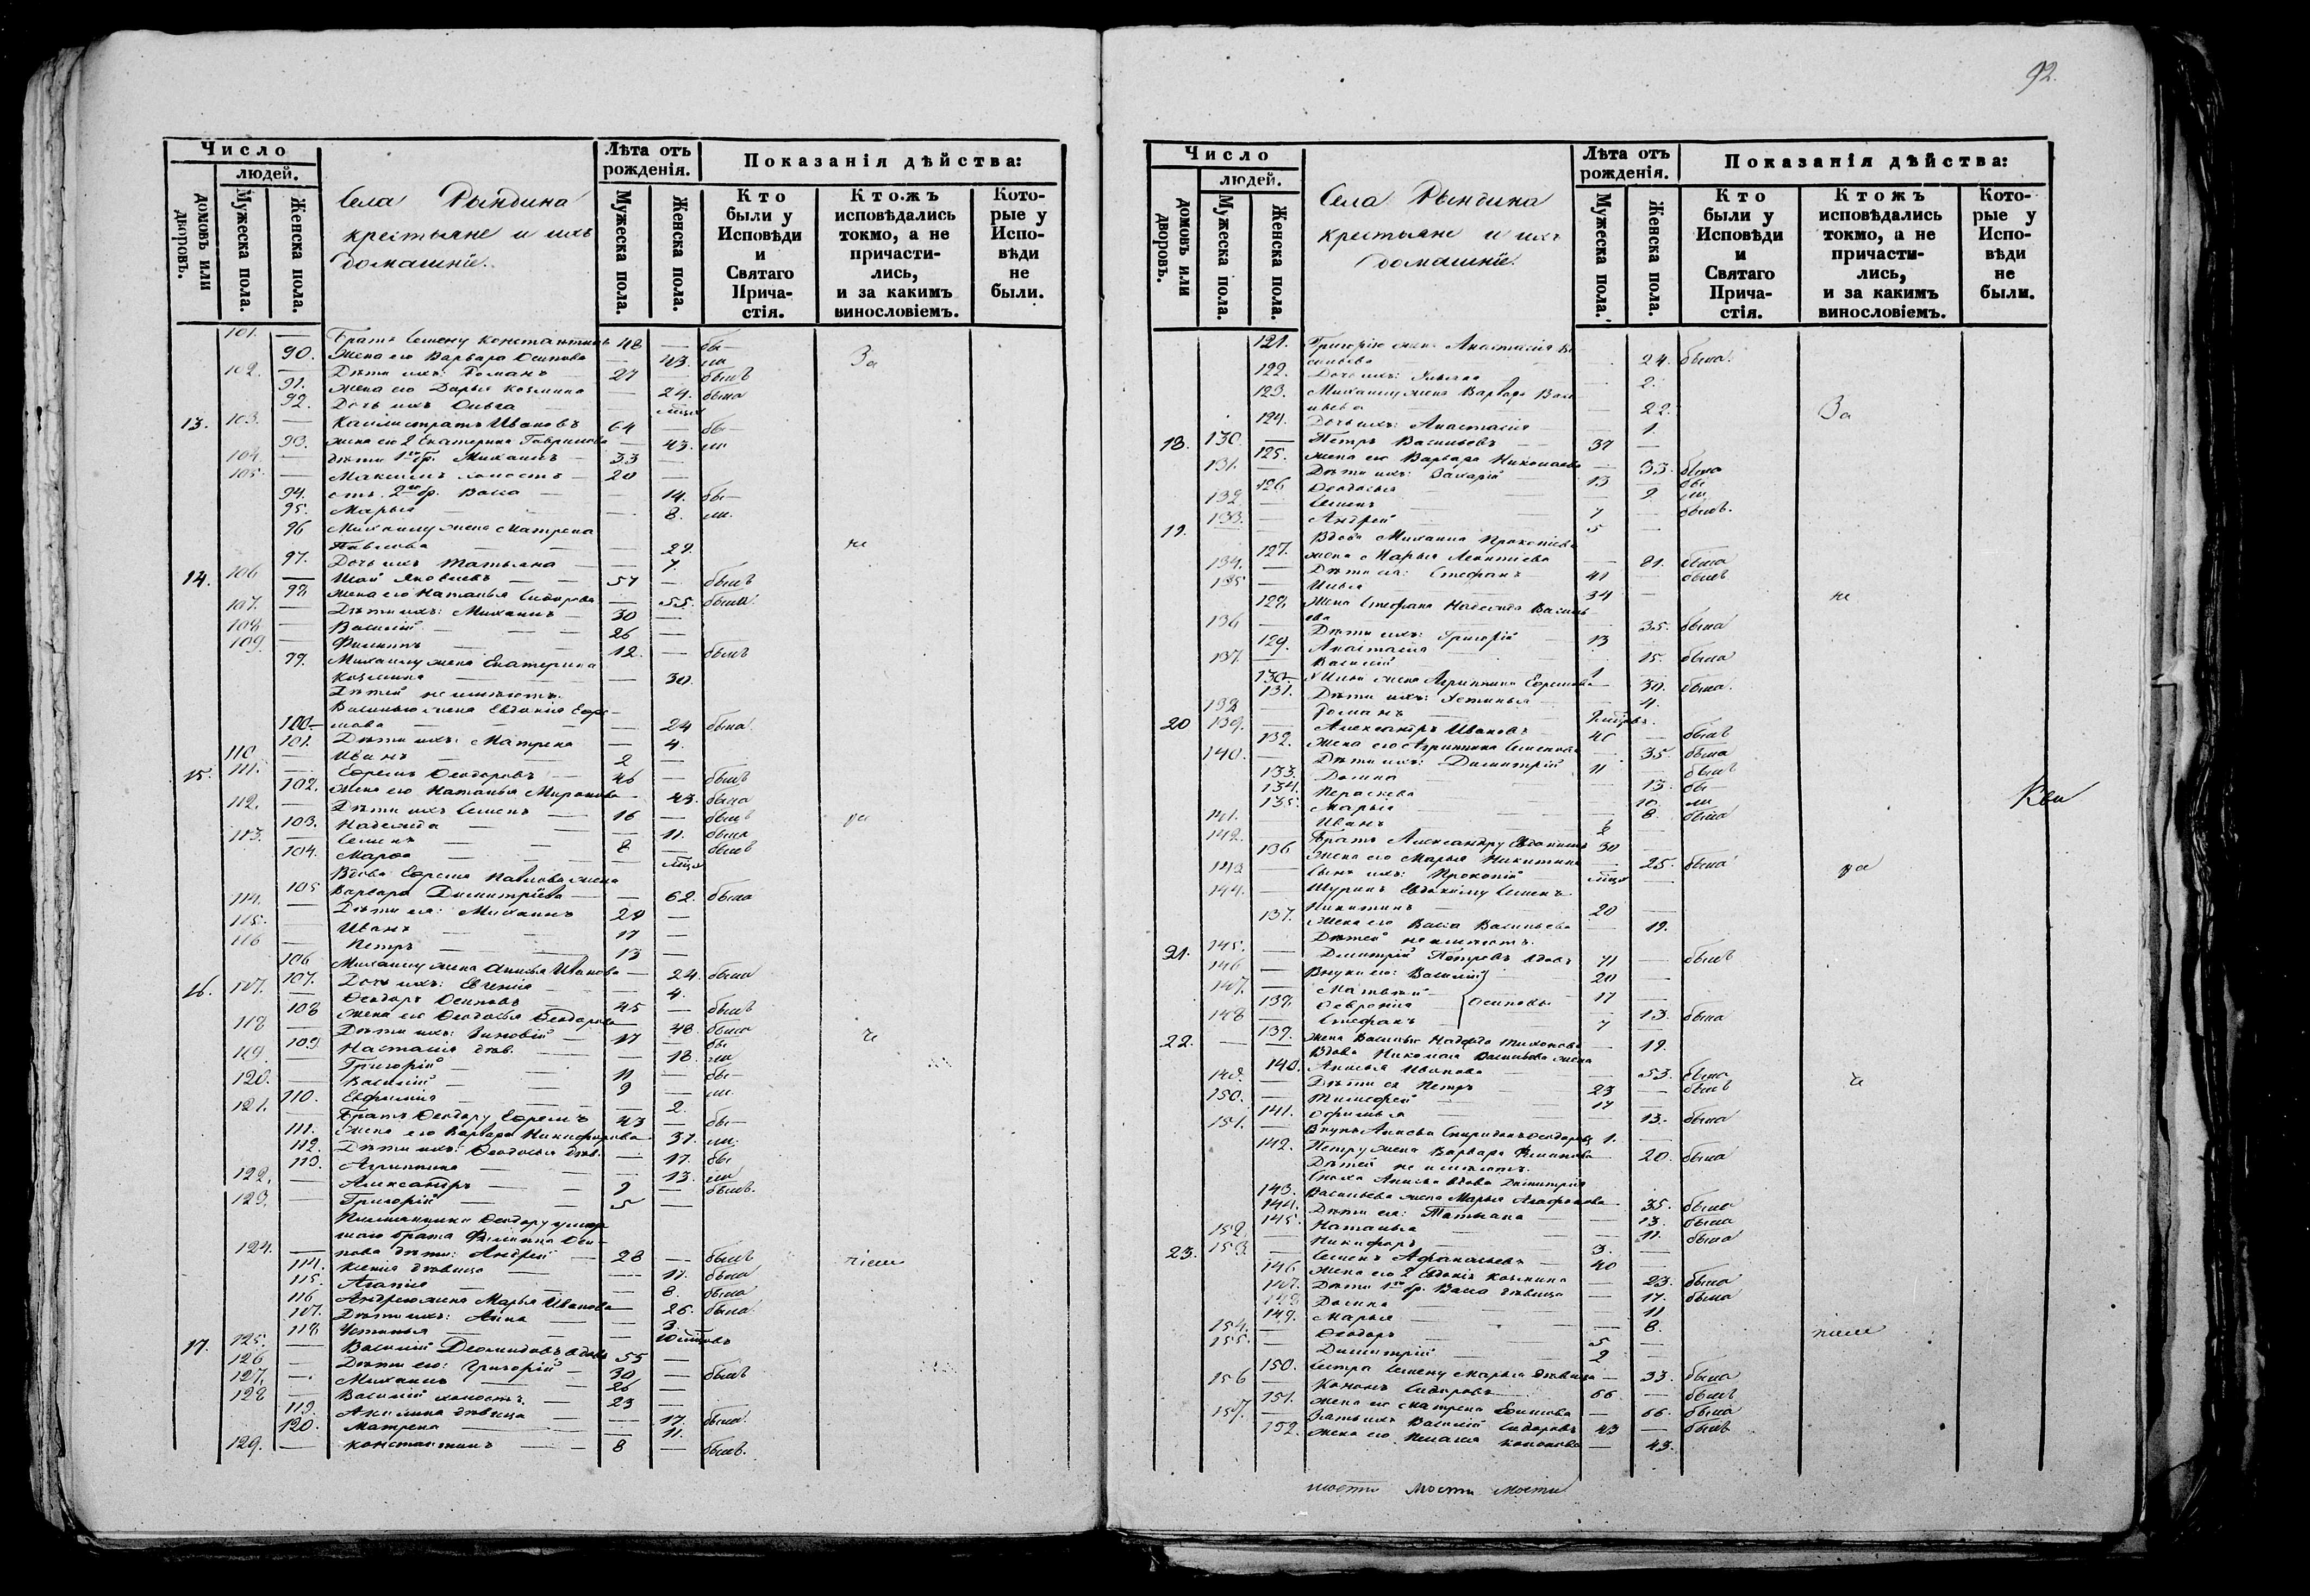 92.
Число
людей.
домовъ или дворовъ.
Мужеска пола.
Женска пола.
Села Рындина
крестьяне и ихъ
домашніе.
Лѣта отъ рожденія.
Мужеска пола.
Женска пола.
Показанія дѣйства:
Кто были у Исповѣди и Святаго Прича-стія.
Ктожъ исповѣдались токмо, а не причасти-лись, и за какимъ винословіемъ.
Кото-рые у Испо-вѣди не были.
101. — Братъ Семену Константинъ 48 — бы-
90. Жена его Варвара Осипова — 43. ли За
102. — Дѣти ихъ: Романъ 27 — былъ
91. Жена его Дарья Козмина — 24. была
92. Дочь ихъ Ольга — —
13. 103. — Каллистратъ Ивановъ 64 — бы-
93. Жена его 2 Екатерина Гаврилова — 43. ли
104. — Дѣти 1го бр. Михаилъ — 33 —
105. — Максимъ холостъ — 20 —
94. отъ 2го бр. Васса — — 14. бы-
95. Марья — — 8. ли.
96 Михаилу жена Матрена
Павлова — — — 29. не
97. Дочь ихъ Татьяна — — 7.
14. 106 — Яковлевъ — — 57 — былъ
98 Жена его Наталья Сидорова — 55. была
107. — Дѣти ихъ: Михаилъ — 30 —
108 — Василій — — 26 —
109 — Филиппъ — — 12. — былъ
99. Михаилу жена Екатерина
Козмина — — — 30.
Дѣтей не имѣютъ.
Василью жена Евдокія Ефре-
100. мова — — — 24 была
101. Дѣти ихъ: Матрена — 4.
110 — Иванъ — — 2 —
15. 111. — Ефремъ Ѳеодоровъ — 46 — былъ
102. Жена его Наталья Миронова — 43. была
112. — Дѣти ихъ Семенъ — 16 — былъ
103. Надежда — — — 11. была
113. — Семенъ — — 8 — былъ
104. Марѳа — — —
Вдова Ефрема Павлова жена
105 Варвара Димитріева — — 62. была
114. — Дѣти ея: Михаилъ 24 —
115. — Иванъ — — 17 —
116 — Петръ — — 13 —
106 Михаилу жена Анисья Иванова — 24. была
107. Дочь ихъ: Евгенія — — 4.
16. 117. — Ѳеодоръ Осиповъ — 45 — былъ
108 Жена его Ѳеодосья Ѳеодорова — 48. была
118 — Дѣти ихъ: Зиновій — 17 — бы
109. Настасія дѣв. — — 18. ли
119. — Григорій — 11 — бы-
120. — Василій — — 9 — ли.
110. Евфимія — — — 2.
121. — Братъ Ѳеодору Ефремъ 43 — бы-
111. Жена его Варвара Никифорова — 37. ли.
112. Дѣти ихъ: Ѳеодосья дѣв. — 17. бы
113. Агриппина — — — 13. ли
122. — Александръ — — 9 — былъ.
123. — Григорій — — 5 —
Племянники Ѳеодору умер-
шаго брата Филиппа Оси-
124. — пова дѣти: Андрей — 28 — былъ
114. Ксенія дѣвица — — 17. была
115. Агапія — — — 8. была
116 Андрею жена Марья Иванова — 26. была
117. Дѣти ихъ: Анна — — 3.
118 Устинья — — —
17. 125. — Василій Деомидовъ вдовъ 55 —
126 — Дѣти его: Григорій — 30 — былъ
127. — Михаилъ — — 26 —
128 — Василій холостъ — 23 —
119. Акилина дѣвица — — 17. была.
120. Матрена — — 11.
129. — Константинъ — — 8 — былъ.
Число
людей.
домовъ или дворовъ.
Мужеска пола.
Женска пола.
Села Рындина
крестьяне и ихъ
домашніе.
Лѣта отъ рожденія.
Мужеска пола.
Женска пола.
Показанія дѣйства:
Кто были у Исповѣди и Святаго Прича-стія.
Ктожъ исповѣдались токмо, а не причасти-лись, и за какимъ винословіемъ.
Кото-рые у Испо-вѣди не были.
121. Григорію жена Анастасія Ва-
сильева — 24. была.
122. Дочь ихъ: Ульяна — 2.
123. Михаилу жена Варвара Васи-
льева — 22. За
124. Дочь ихъ: Анастасія — 1.
18. 130. — Петръ Васильевъ — 37 —
125. Жена его Варвара Николаева — 33. была
131. — Дѣти ихъ: Захарій — 13 — бы
126 Ѳеодосья — — 9. ли
132 — Семенъ — — 7 — былъ.
133. — Андрей — — 5 —
19. Вдова Михаила Прокопіева
127. жена Марья Леонтіева — 61. была
134. — Дѣти ея: Стефанъ 41 былъ
135 — Илья — 34 — не
128. Жена Стефана Надежда Василь
ева — 35. была
136 — Дѣти ихъ: Григорій — 13
129. Анастасія — — 15. была
137. — Василій — 1
130. Ильи жена Агриппина Ефремова — 30. была.
131. Дѣти ихъ: Устинья — 4.
138 — Романъ —
20 139. — Александръ Ивановъ — 40 — былъ
132. Жена его Агриппина Семенова — 35. была
140. — Дѣти ихъ: Димитрій 11 — былъ
133. Домна — — 13. бы-
134. Параскева — — 10. ли
135. Марья — — 8. была
141. — Иванъ —
142. — Братъ Александру Евдокимъ 30 —
136 Жена его Марья Никитина — 25. была ра
143 — Сынъ ихъ: Прокопій —
144. — Шуринъ Евдокиму Семенъ
Никитинъ — 20 —
137. Жена его Васса Васильева — 19.
Дѣтей не имѣютъ.
21. 145. — Димитрій Петровъ вдовъ 71 — былъ
146 — Внуки его: Василій 20 —
147. — Матвѣй — Осиповы 17 —
138. Ѳевронія — 13. была
148 — Стефанъ — 7 —
139. Жена Василья Надежда Тихонова — 19.
22. Вдова Николая Васильева жена
140. Анисья Иванова — — 53. была
149. — Дѣти ея Петръ — 23 — былъ
150. — Тимофей — — 17
141. Офимья — — — 13. была
151. — Внукъ Анисьи Спиридонъ Ѳеодоровъ 1. —
142. Петру жена Варвара Филипова — 20. была
Дѣтей не имѣютъ.
Сноха Анисьи вдова Димитрія
143. Васильева жена Марья Агафонова — 35. была
144. Дѣти ея: Татьяна — — 13. была
145. Наталья — — 11. была
152. — Никифоръ — — 3. —
23. 153 — Семенъ Афанасьевъ — 40 —
146 Жена его 2 Евдокія Козмина — 23. была
147. Дѣти 1го бр. Васса дѣвица — 17. была
148 Домна — — 11
149. Марья — — 8.
154. — Ѳеодоръ — — 5 —
155. — Димитрій — — 2 —
150. Сестра Семену Марья дѣвица — 33. была
156 — Кононъ Сидоровъ — 66 — былъ
151. Жена его Матрена Ефимова — 66. была
157. — Зять ихъ Василій Сидоровъ 43 — былъ
152. Жена его Пелагія Кононова — 43.